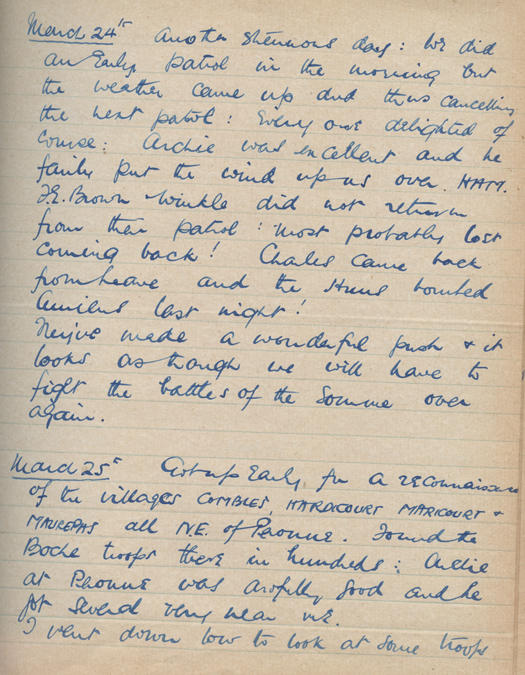 March 24th Another strenuous day: We did
an Early patrol in the morning but
the weather came up and thus cancelling
the next patrol: Every one delighted of
course: Archie was excellent and he
fairly put the wind up us over HAM.
J.E. Brown + Winkle did not return
from their patrol: Most probably lost
coming back! Charles came back
from leave and the Huns bombed
Amiens last night!
made a wonderful push + it
looks as though we will have to
fight the battles of the Somme over
again.
March 25th Got up Early for a reconnaissance
of the villages COMBLES, HARDCOURT MARICOURT +
MAUREPAS all N.E. of Peronne. Found the
Boche troops there in hundreds: Archie
at Peronne was awfully good and he
got several very near me.
I went down low to look at some troops